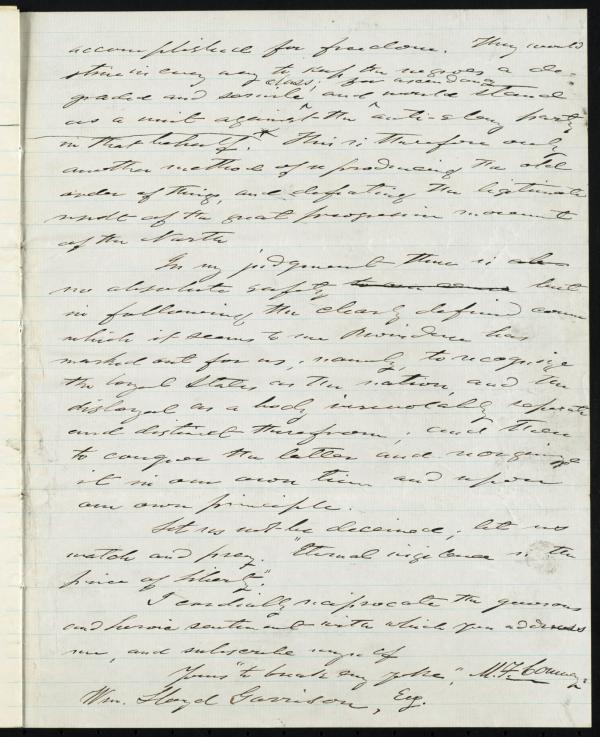 accomplished for freedom. They would
strive in every way to keep the negroes a de-
graded and servile class; and would stand
as a unit against the ascendancy anti-slavery party
in that behalf. * This is therefore only
another method of reproducing the old
order of things, and defeating the legitimate
result of the great progressive movement
of the North
In my judgment there is
no absolute safety but
in following the clearly defined course
which it seems to me Providence has
marked out for us, namely, to recognize
the loyal States as the nation, and the
disloyal as a body irrevocably separate
and distinct therefrom; and then
to conquer the latter and reorganize
it in our own time and upon
our own principle.
Let us not be deceived, let us
watch and pray. "Eternal vigilance is the
price of liberty."
I cordially reciprocate the generous
and heroic sentiment with which you address
me, and subscribe myself
Yours "to break every yoke," M. F. Conway.
Wm. Lloyd Garrison, Esq.